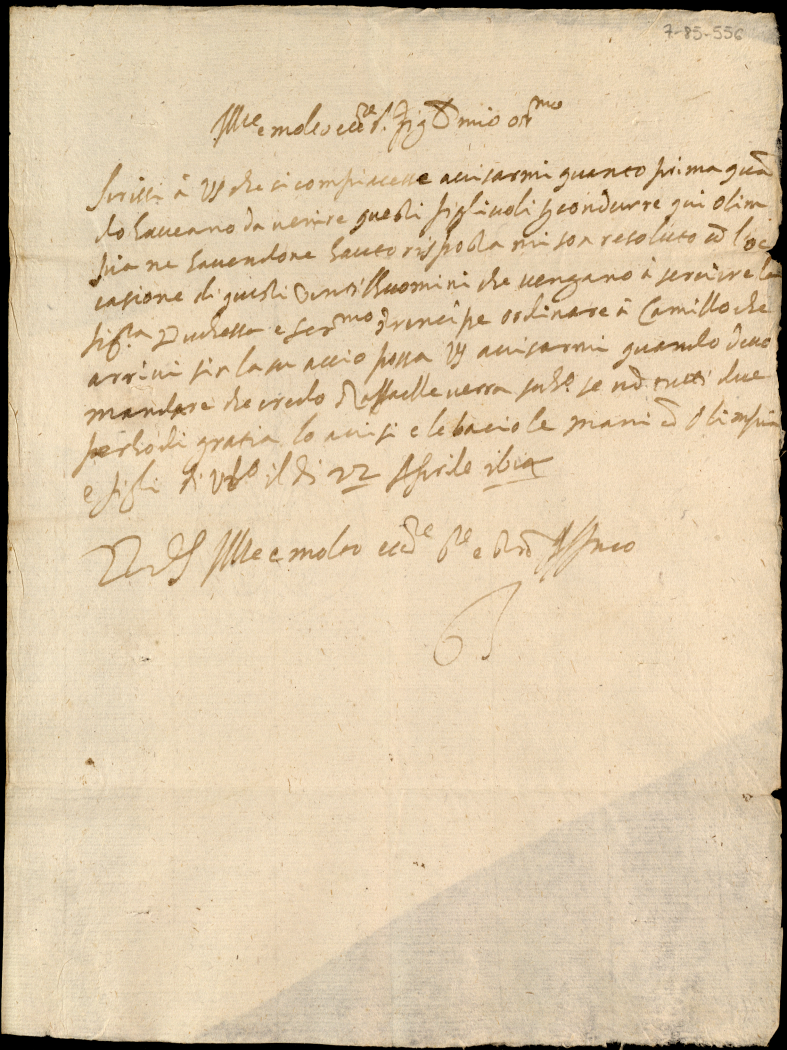 7-85-556
Ill.re e molto ecc.te S. Sig. mio oss.mo
Scrissi à VS che si compiacesse avisarmi quanto prima quā
do haveano da venire questi figlivoli p condurre qui Olim
pia ne havendone hauto risposta mi son resoluto cō l'oc
casione di questi Gentilhuomini che vengano à servire la
sig.ra Duchessa e ser.mo Prencipe ordinare à Camillo che
arrivi sin la su accio possa VS avisarmi quando devo
mandare che credo Raffaelle verra sub.o se nō tutti due
perho di gratia lo avisi e le bacio le mani cō Olimpia
e figli di Urb.o il di 22 Aprile
Di VS Ill.re e molto ecc.te